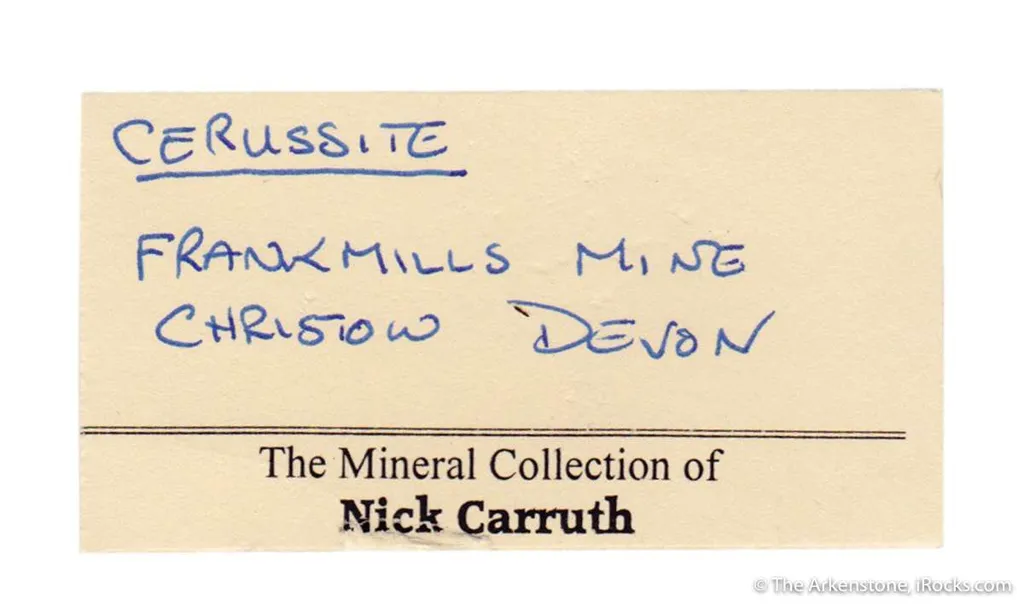 CERUSSITE
FRANKMILLS MINE
CHRISTOW DEVON
The Mineral Collection of
Nick Carruth
© The Arkenstone, iRocks.com